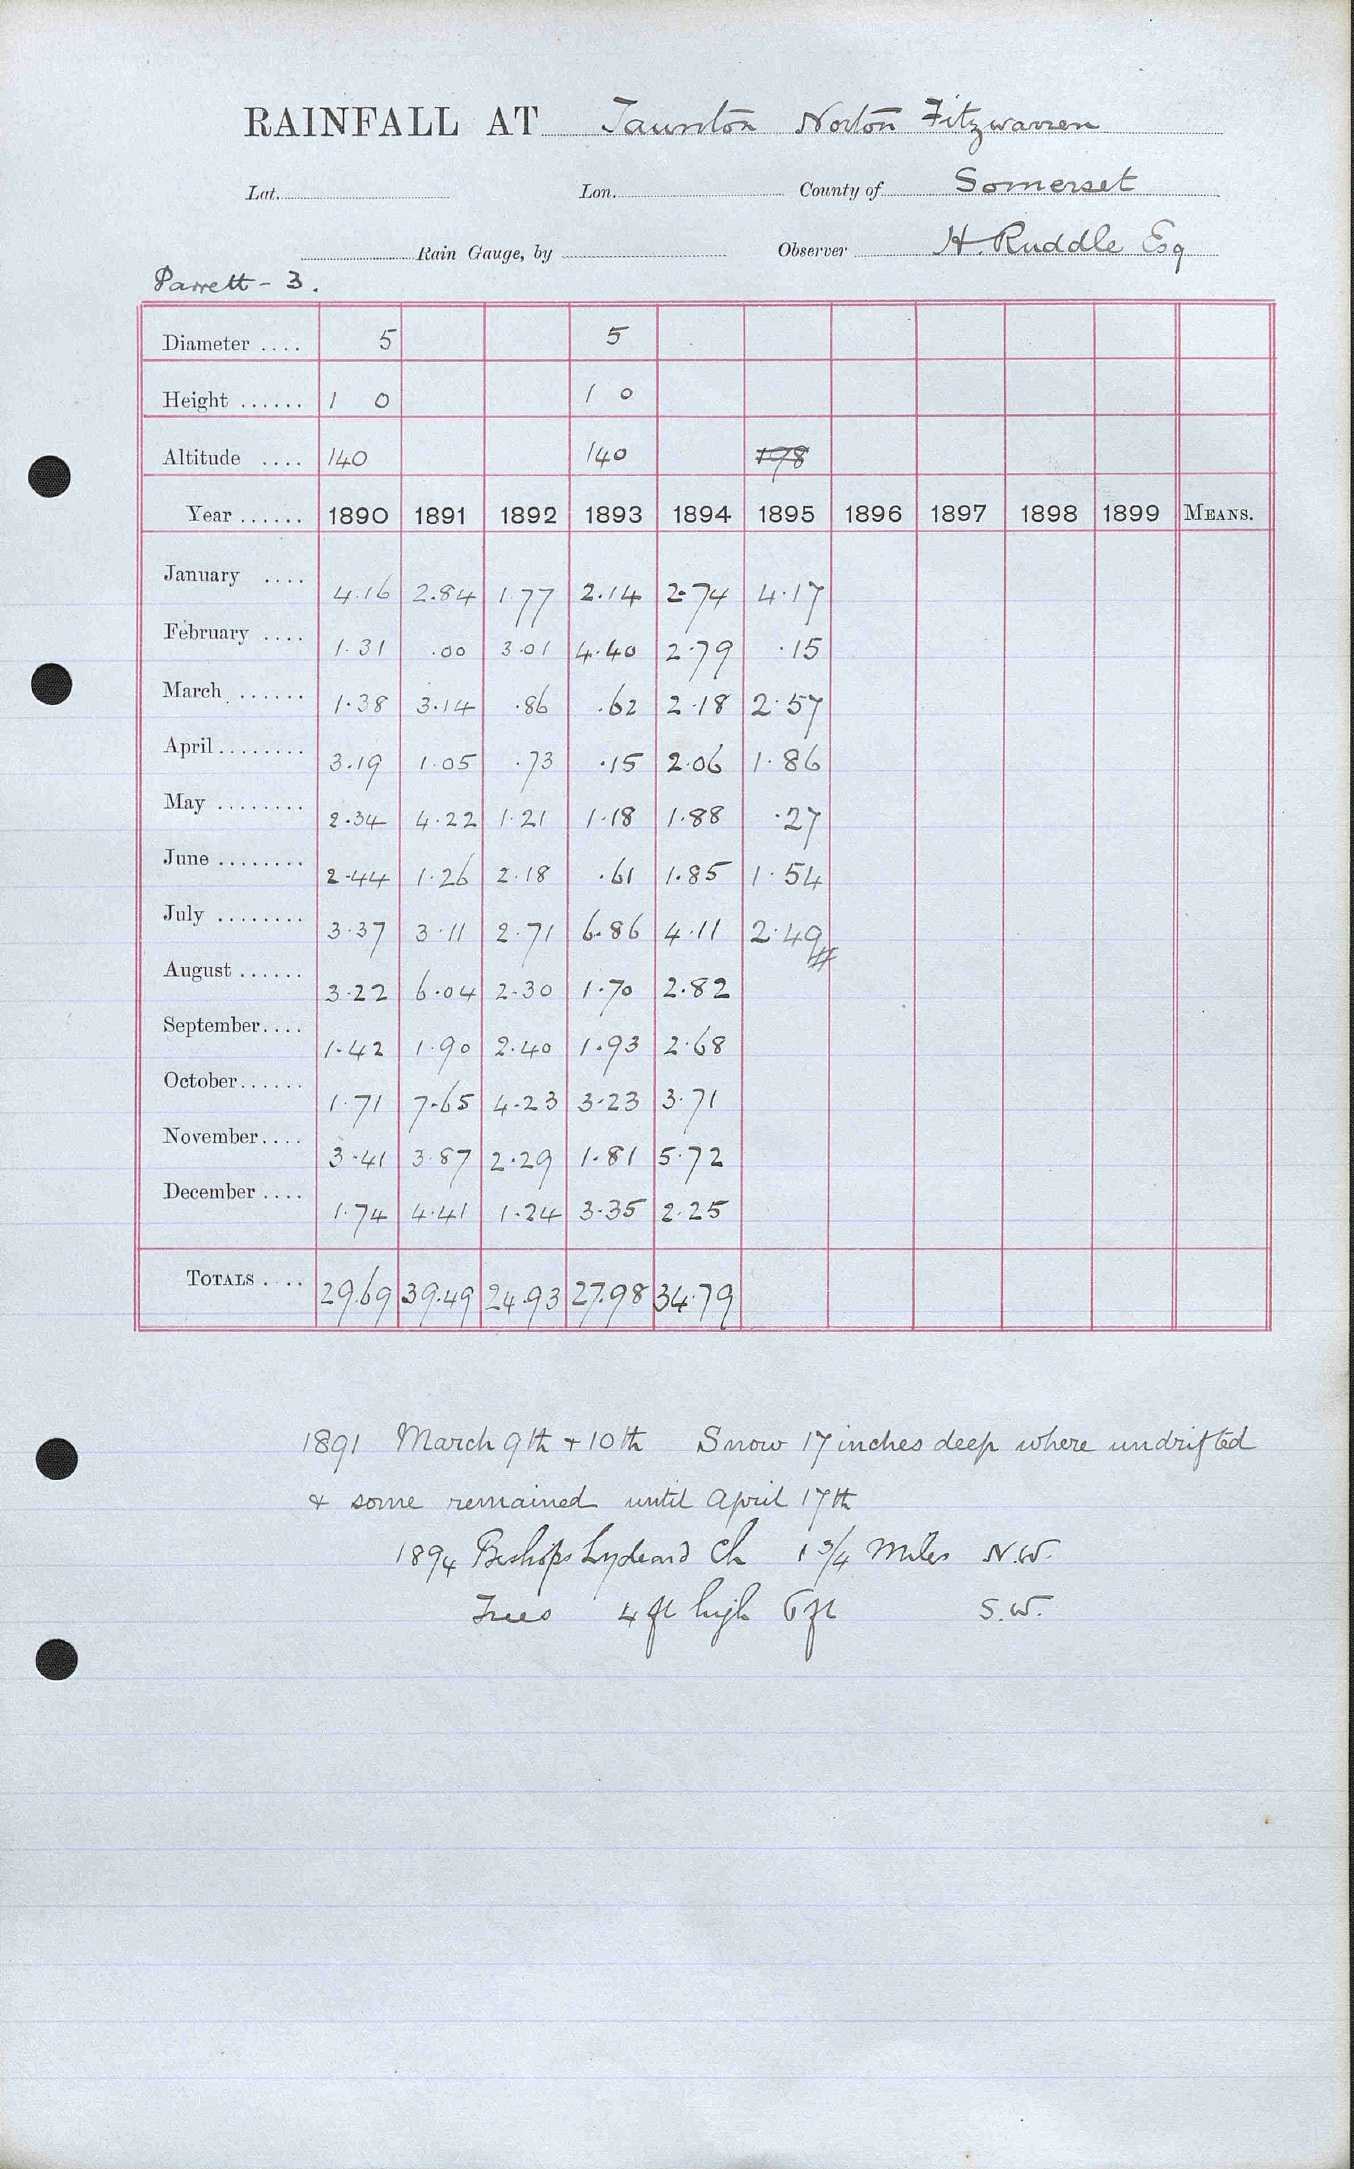 RAINFALL AT Taunton Norton Fitzwarren
Lat. Lon. County of Somerset
Rain Gauge, by Observer H. Ruddle Esq
Parrett - 3.
Diameter .... 5 5
Height ...... 1 0 1 0
Altitude .... 140 140 178
Year ...... 1890 1891 1892 1893 1894 1895 1896 1897 1898 1899 MEANS.
January .... 4.16 2.84 1.77 2.14 2.74 4.17
February .... 1.31 .00 3.01 4.40 2.79 .15
March ...... 1.38 3.14 .86 .62 2.18 2.57
April ........ 3.19 1.05 .73 .15 2.06 1.86
May ........ 2.34 4.22 1.21 1.18 1.88 .27
June ........ 2.44 1.26 2.18 .61 1.85 1.54
July ........ 3.37 3.11 2.71 6.86 4.11 2.49
August ...... 3.22 6.04 2.30 1.70 2.82
September.... 1.42 1.90 2.40 1.93 2.68
October...... 1.71 7.65 4.23 3.23 3.71
November.... 3.41 3.87 2.29 1.81 5.72
December .... 1.74 4.41 1.24 3.35 2.25
TOTALS .... 29.69 39.49 24.93 27.98 34.79
1891 March 9th + 10th Snow 17 inches deep where undrifted
& some remained until April 17th
1894 Bishops Lydeard Ch 1 3/4 Miles N.W.
Trees 4 ft high 6 ft S.W.